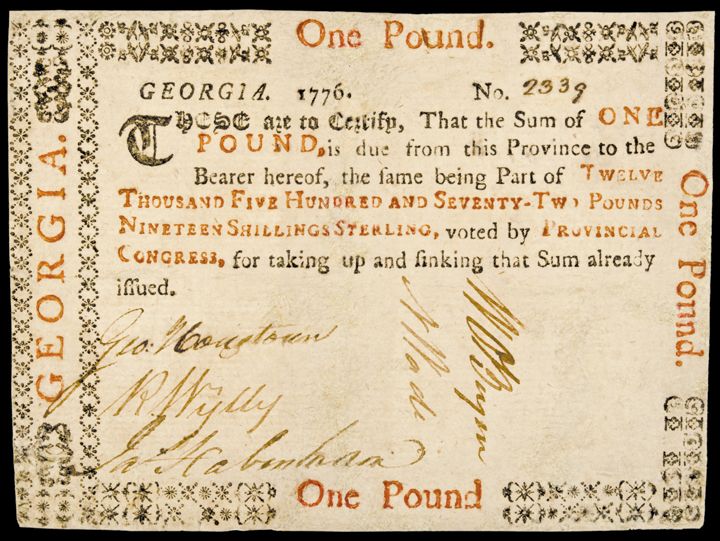 One Pound.
GEORGIA. 1776. No. 2339
THESE are to Certify, That the Sum of ONE
POUND, is due from this Province to the
Bearer hereof, the ſame being Part of TWELVE
THOUSAND FIVE HUNDRED AND SEVENTY-TWO POUNDS
NINETEEN SHILLINGS STERLING, voted by PROVINCIAL
CONGRESS, for taking up and ſinking that Sum already
iſſued.
Geo. Houstoun
R Wylly
Ja Habersham
N Wade
W OBryen
One Pound
GEORGIA.
One Pound.